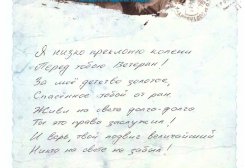 Я низко преклоню колени
Перед тобою Ветеран!
За моё детство золотое,
Спасённое тобой от ран.
Живи на свете долго-долго
Ты это право заслужил!
И верь, твой подвиг величайший
Никто на свете не забыл!